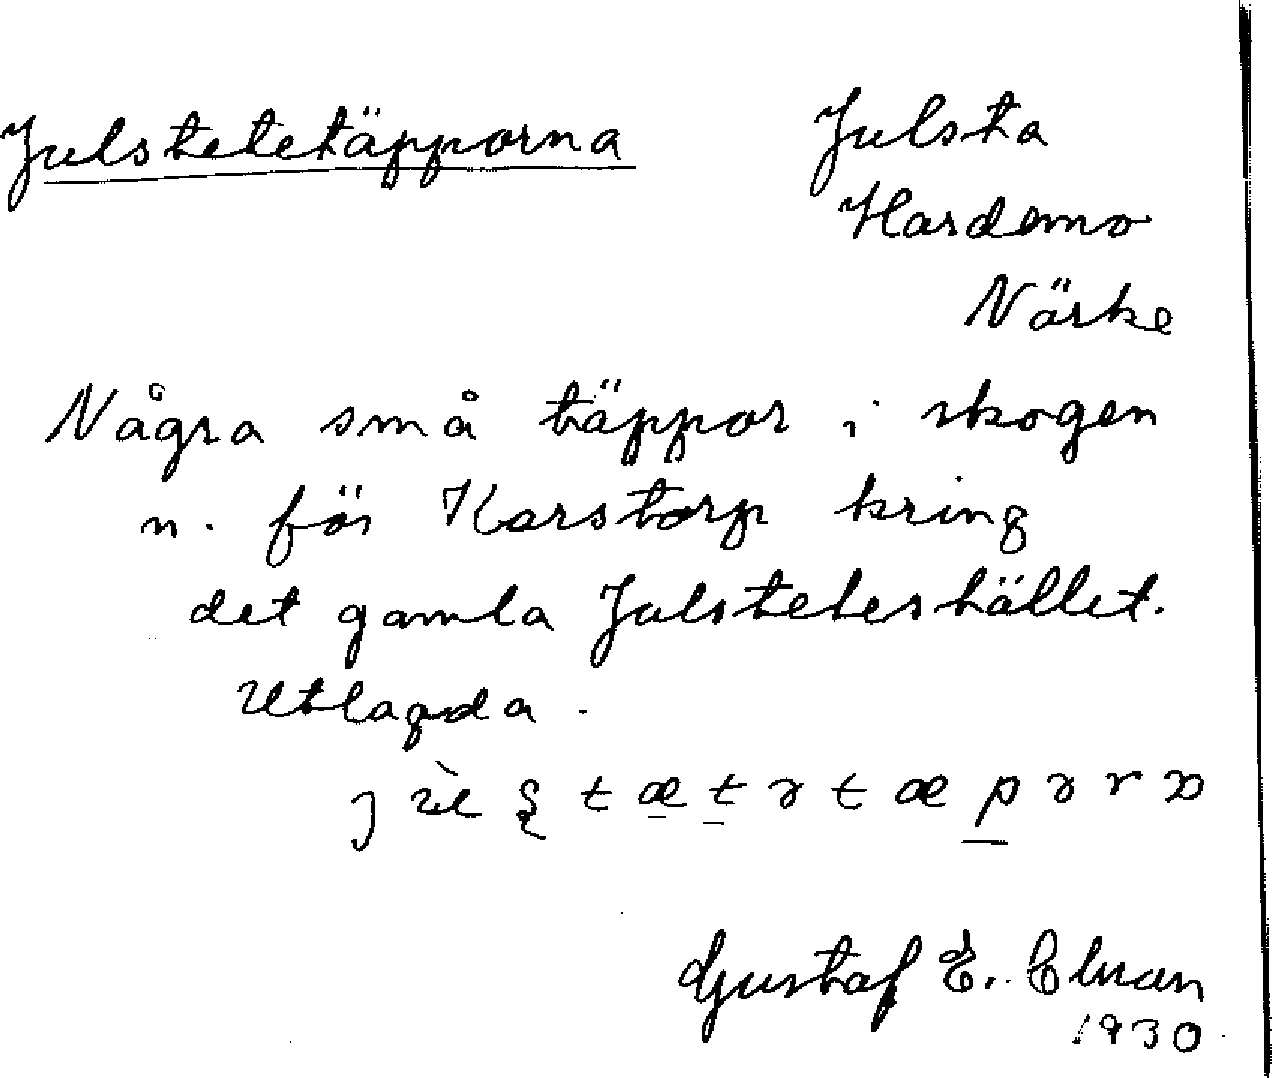 Julstetetäpporna
Julsta
Hardemo
Närke
Några små täppor i skogen
n. för Karstorp kring
det gamla Julstetershållet.
Utlagda.
Gustaf E.
1930